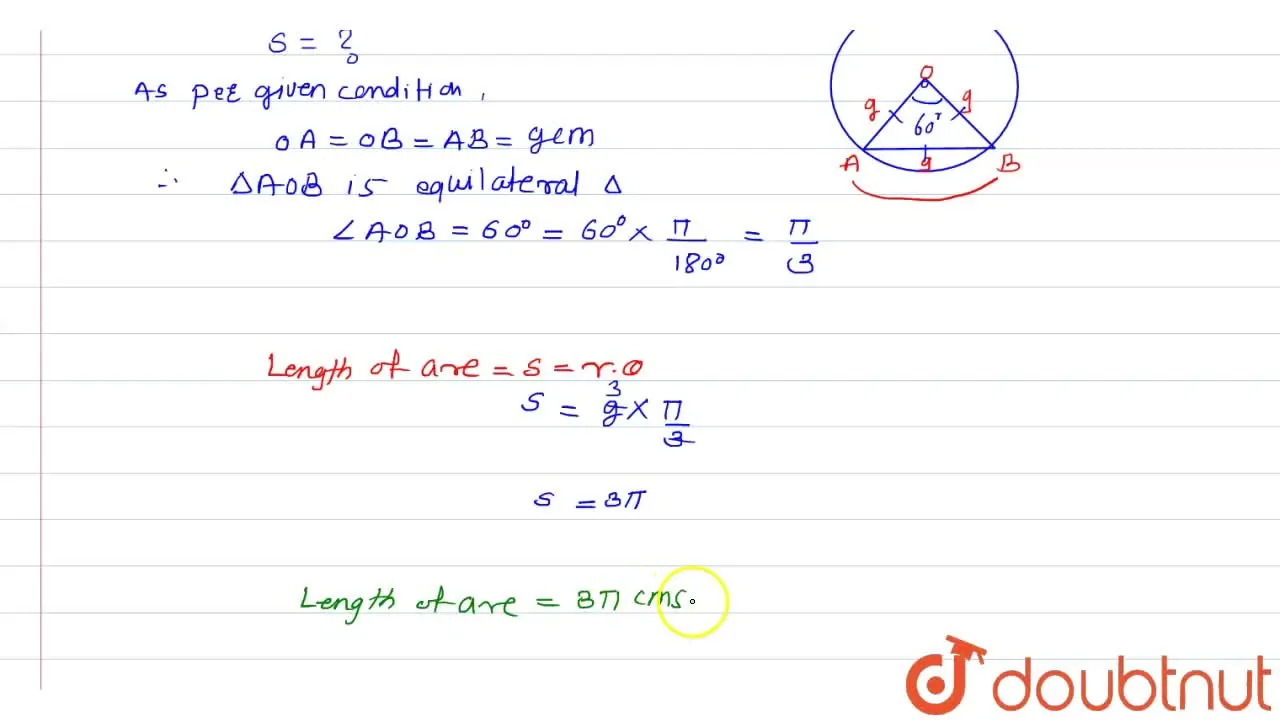 S = ?
As per given condition,
OA = OB = AB = 9cm
∴ ΔAOB is equilateral Δ
∠AOB = 60° = 60° × π/180° = π/3
O
9 9
60°
A 9 B
Length of arc = s = r.θ
3
S = 9 × π/3
s = 3π
Length of arc = 3π cms.
doubtnut